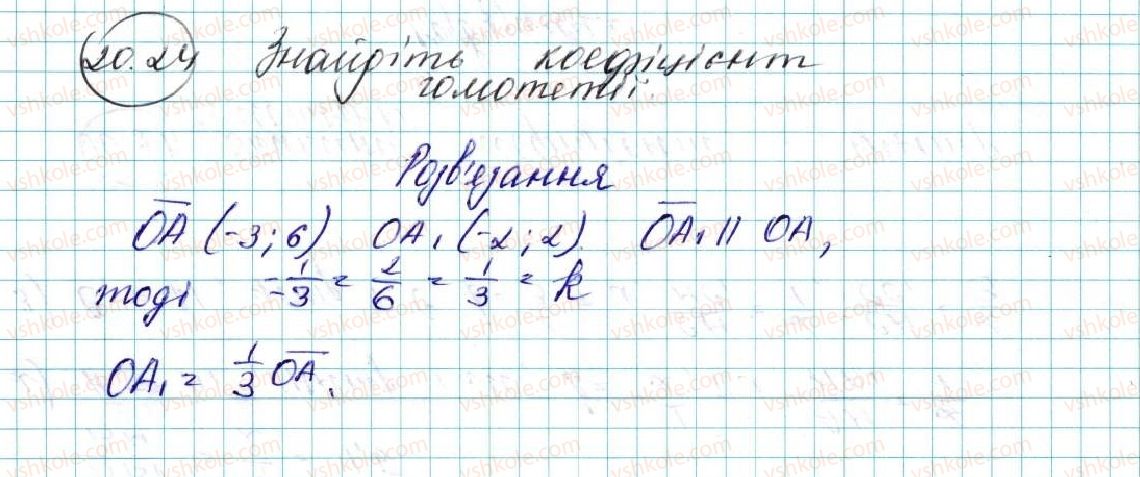 20.24 Знайдіть коефіцієнт
гомотетії.
Розв'язання
OA (-3; 6) OA₁ (-2; 2) OA₁ || OA,
тоді -1/-3 = 2/6 = 1/3 = k
OA₁ = 1/3 OA.